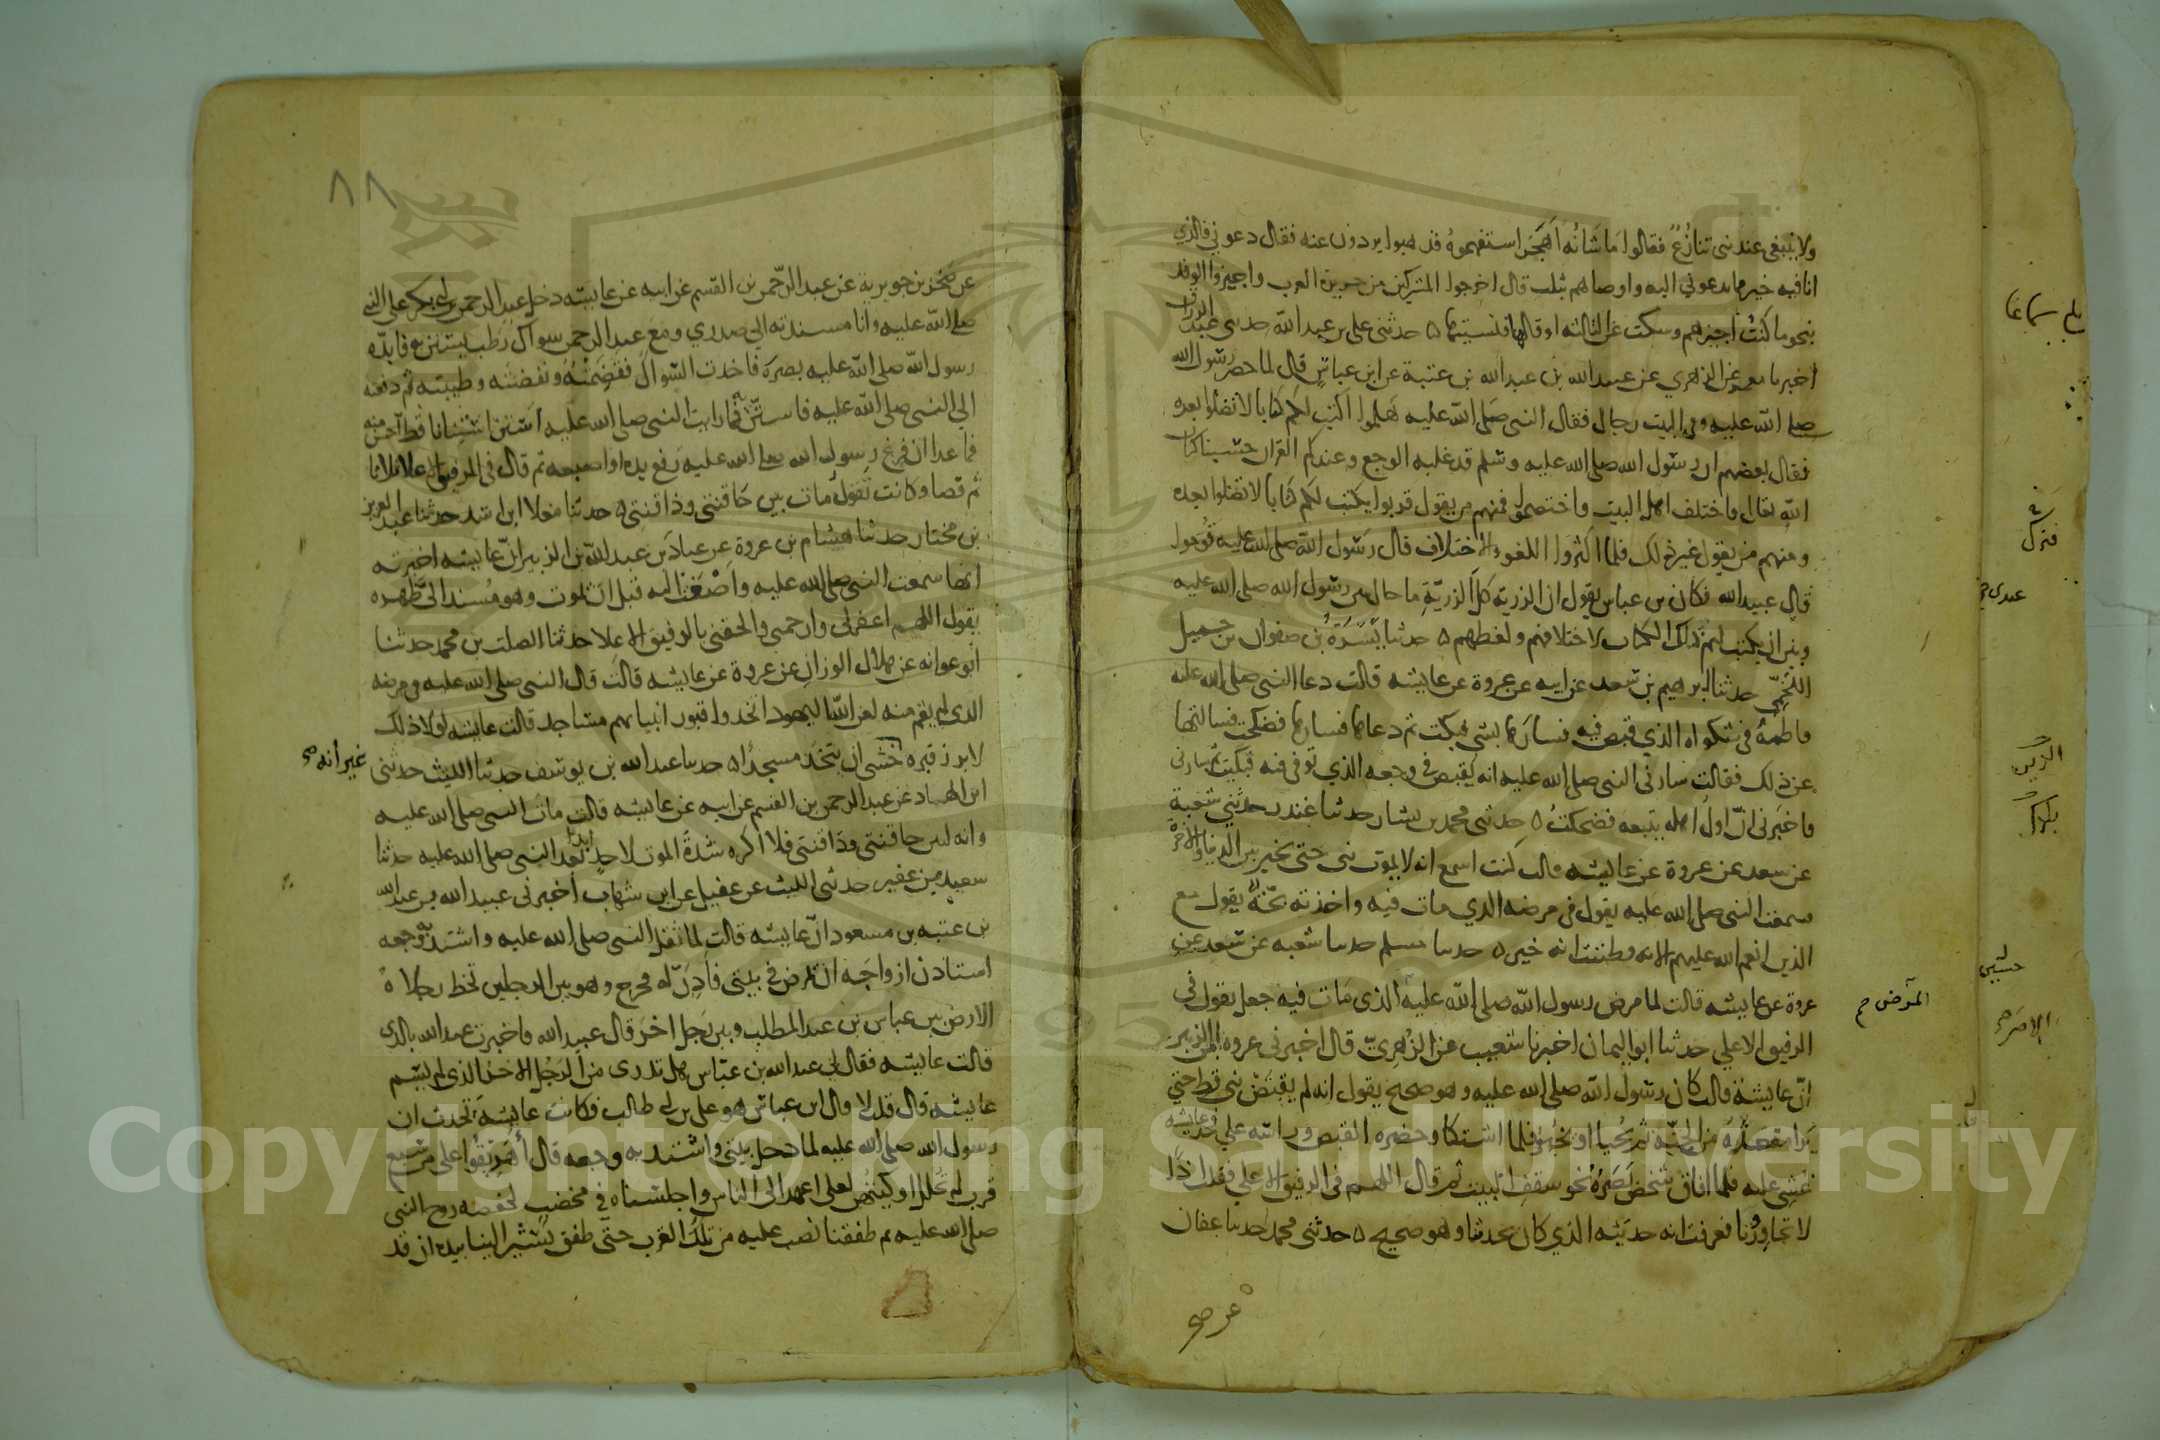 ولا ينبغي عند نبي تنازع فقالوا ما شانه اهجر استفهموه فذهبوا يردون عنه فقال دعوني فالذي
انا فيه خير مما تدعوني اليه واوصاهم بثلث قال اخرجوا المشركين من جزيرة العرب واجيزوا الوفد
بنحو ما كنت اجيزهم وسكت عن الثالثة او قال فنسيتها ٥ حدثنى على بن عبد الله حدثنى عبد الرزاق
اخبرنا معمر عن الزهري عن عبيد الله بن عبد الله بن عتبة عن ابن عباس قال لما حضر رسول الله
صلى الله عليه وفي البيت رجال فقال النبي صلى الله عليه هلموا اكتب لكم كتابا لا تضلوا بعده
فقال بعضهم ان رسول الله صلى الله عليه وسلم قد غلبه الوجع وعندكم القران حسبنا كتاب
الله تعالى فاختلف اهل البيت واختصموا فمنهم من يقول قربوا يكتب لكم كتابا لا تضلوا بعده
ومنهم من يقول غير ذلك فلما اكثروا اللغو والاختلاف قال رسول الله صلى الله عليه قوموا
قال عبيد الله فكان بن عباس يقول ان الرزية كل الرزية ما حال بين رسول الله صلى الله عليه
وبين ان يكتب لهم ذلك الكتاب لاختلافهم ولغطهم ٥ حدثنا يسرة بن صفوان بن جميل
اللخمي حدثنا ابرهيم بن سعد عن ابيه عن عروة عن عايشه قالت دعا النبي صلى الله عليه
فاطمة في شكواه الذي قبض فيه فسارها بشى فبكت ثم دعاها فسارها فضحكت فسالتها
عن ذلك فقالت سارني النبي صلى الله عليه انه يقبض في وجعه الذي توفي فيه فبكيت ثم سارني
فاخبرني انى اول اهله يتبعه فضحكت ٥ حدثنى محمد بن بشار حدثنا غندر حدثني شعبة
عن سعد عن عروة عن عايشه قالت كنت اسمع انه لا يموت نبي حتى يخير بين الدنيا والاخرة
سمعت النبي صلى الله عليه يقول في مرضه الذي مات فيه واخذته بحة يقول مع
الذين انعم الله عليهم الاية فظننت انه خير ٥ حدثنا مسلم حدثنا شعبه عن سعد عن
عروة عن عايشه قالت لما مرض رسول الله صلى الله عليه الذي مات فيه جعل يقول في
الرفيق الاعلي حدثنا ابو اليمان اخبرنا شعيب عن الزهري قال اخبرني عروة بن الزبير
ان عايشة قالت كان رسول الله صلى الله عليه وهو صحيح يقول انه لم يقبض نبي قط حتي
يرا مقعده من الجنة ثم يحيا او يخير فلما اشتكا وحضره القبض وراسه علي فخذ عايشه
غشي عليه فلما افاق شخص بصره نحو سقف البيت ثم قال اللهم في الرفيق الاعلي فقلت اذا
لا يجاورنا فعرفت انه حديثه الذي كان يحدثنا وهو صحيح ٥ حدثني محمد حدثنا عفان
المرض
٨٨
عن صخر بن جويرية عن عبد الرحمن بن القسم عن ابيه عن عايشه دخل عبد الرحمن بن ابي بكر على النبي
صلى الله عليه وانا مسندته الي صدري ومع عبد الرحمن سواك رطب يستن به فابده
رسول الله صلى الله عليه بصره فاخذت السواك فقضمته ونفضته وطيبته ثم دفعته
الي النبي صلى الله عليه فاستن به فما رايت النبي صلى الله عليه استن استنانا قط احسن منه
فما عدا ان فرغ رسول الله صلى الله عليه رفع يده او اصبعه ثم قال في الرفيق الاعلا ثلاثا
ثم قضا وكانت تقول مات بين حاقنتي وذاقنتي ٥ حدثنا معلا ابن اسد حدثنا عبد العزيز
بن مختار حدثنا هشام بن عروة عن عباد بن عبد الله بن الزبير ان عايشه اخبرته
انها سمعت النبي صلى الله عليه واصغت اليه قبل ان يموت وهو مسند الي ظهره
يقول اللهم اغفر لي وارحمني والحقني بالرفيق الاعلا حدثنا الصلت بن محمد حدثنا
ابو عوانه عن هلال الوزان عن عروة عن عايشه قالت قال النبي صلى الله عليه في مرضه
الذي لم يقم منه لعن الله اليهود اتخذوا قبور انبيائهم مساجد قالت عايشه لولا ذلك
لابرز قبره خشى ان يتخذ مسجدا ٥ حدثنا عبد الله بن يوسف حدثنا الليث حدثنى
غير انه
ابن الهاد عن عبد الرحمن بن القسم عن ابيه عن عايشه قالت مات النبي صلى الله عليه
وانه لبين حاقنتي وذاقنتي فلا اكره شدة الموت لاحد ابدا بعد النبي صلى الله عليه حدثنا
سعيد بن عفير حدثني الليث عن عقيل عن ابن شهاب اخبرني عبيد الله بن عبد الله
بن عتبه بن مسعود ان عايشه قالت لما ثقل النبي صلى الله عليه واشتد به وجعه
استاذن ازواجه ان يمرض في بيتي فاذن له فخرج وهو بين الرجلين تخط رجلاه
الارض بين عباس بن عبد المطلب وبين رجل اخر قال عبيد الله فاخبرت عبد الله بالذي
قالت عايشه فقال لي عبد الله بن عباس هل تدرى من الرجل الاخر الذي لم تسم
عايشه قال قلت لا قال ابن عباس هو علي بن ابي طالب فكانت عايشه تحدث ان
رسول الله صلى الله عليه لما دخل بيتي واشتد به وجعه قال اهريقوا على من سبع
قرب لم تحلل اوكيتهن لعلي اعهد الى الناس واجلسناه في مخضب لحفصه زوج النبي
صلى الله عليه ثم طفقنا نصب عليه من تلك القرب حتي طفق يشير الينا بيده ان قد
Copyright © King Saud University